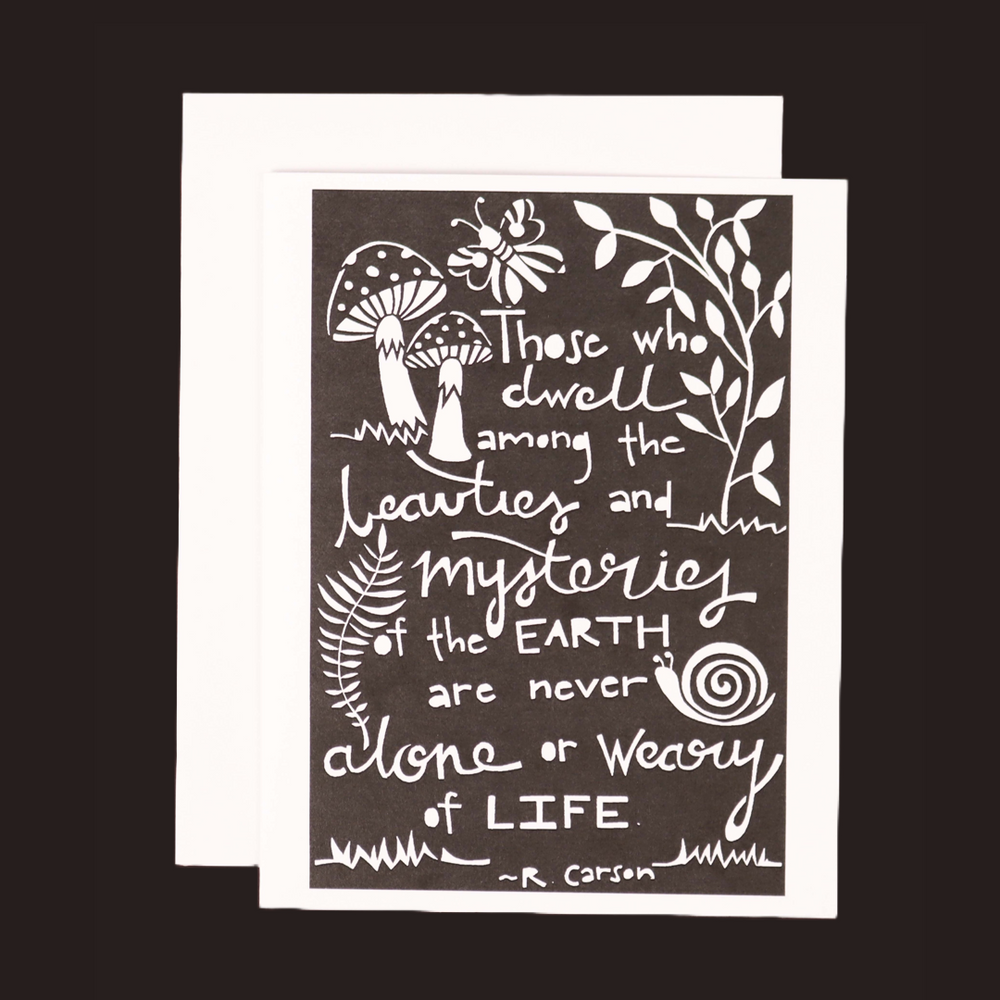 Those who
dwell
among the
beauties and
mysteries
of the EARTH
are never
alone or Weary
of LIFE.
~R. Carson